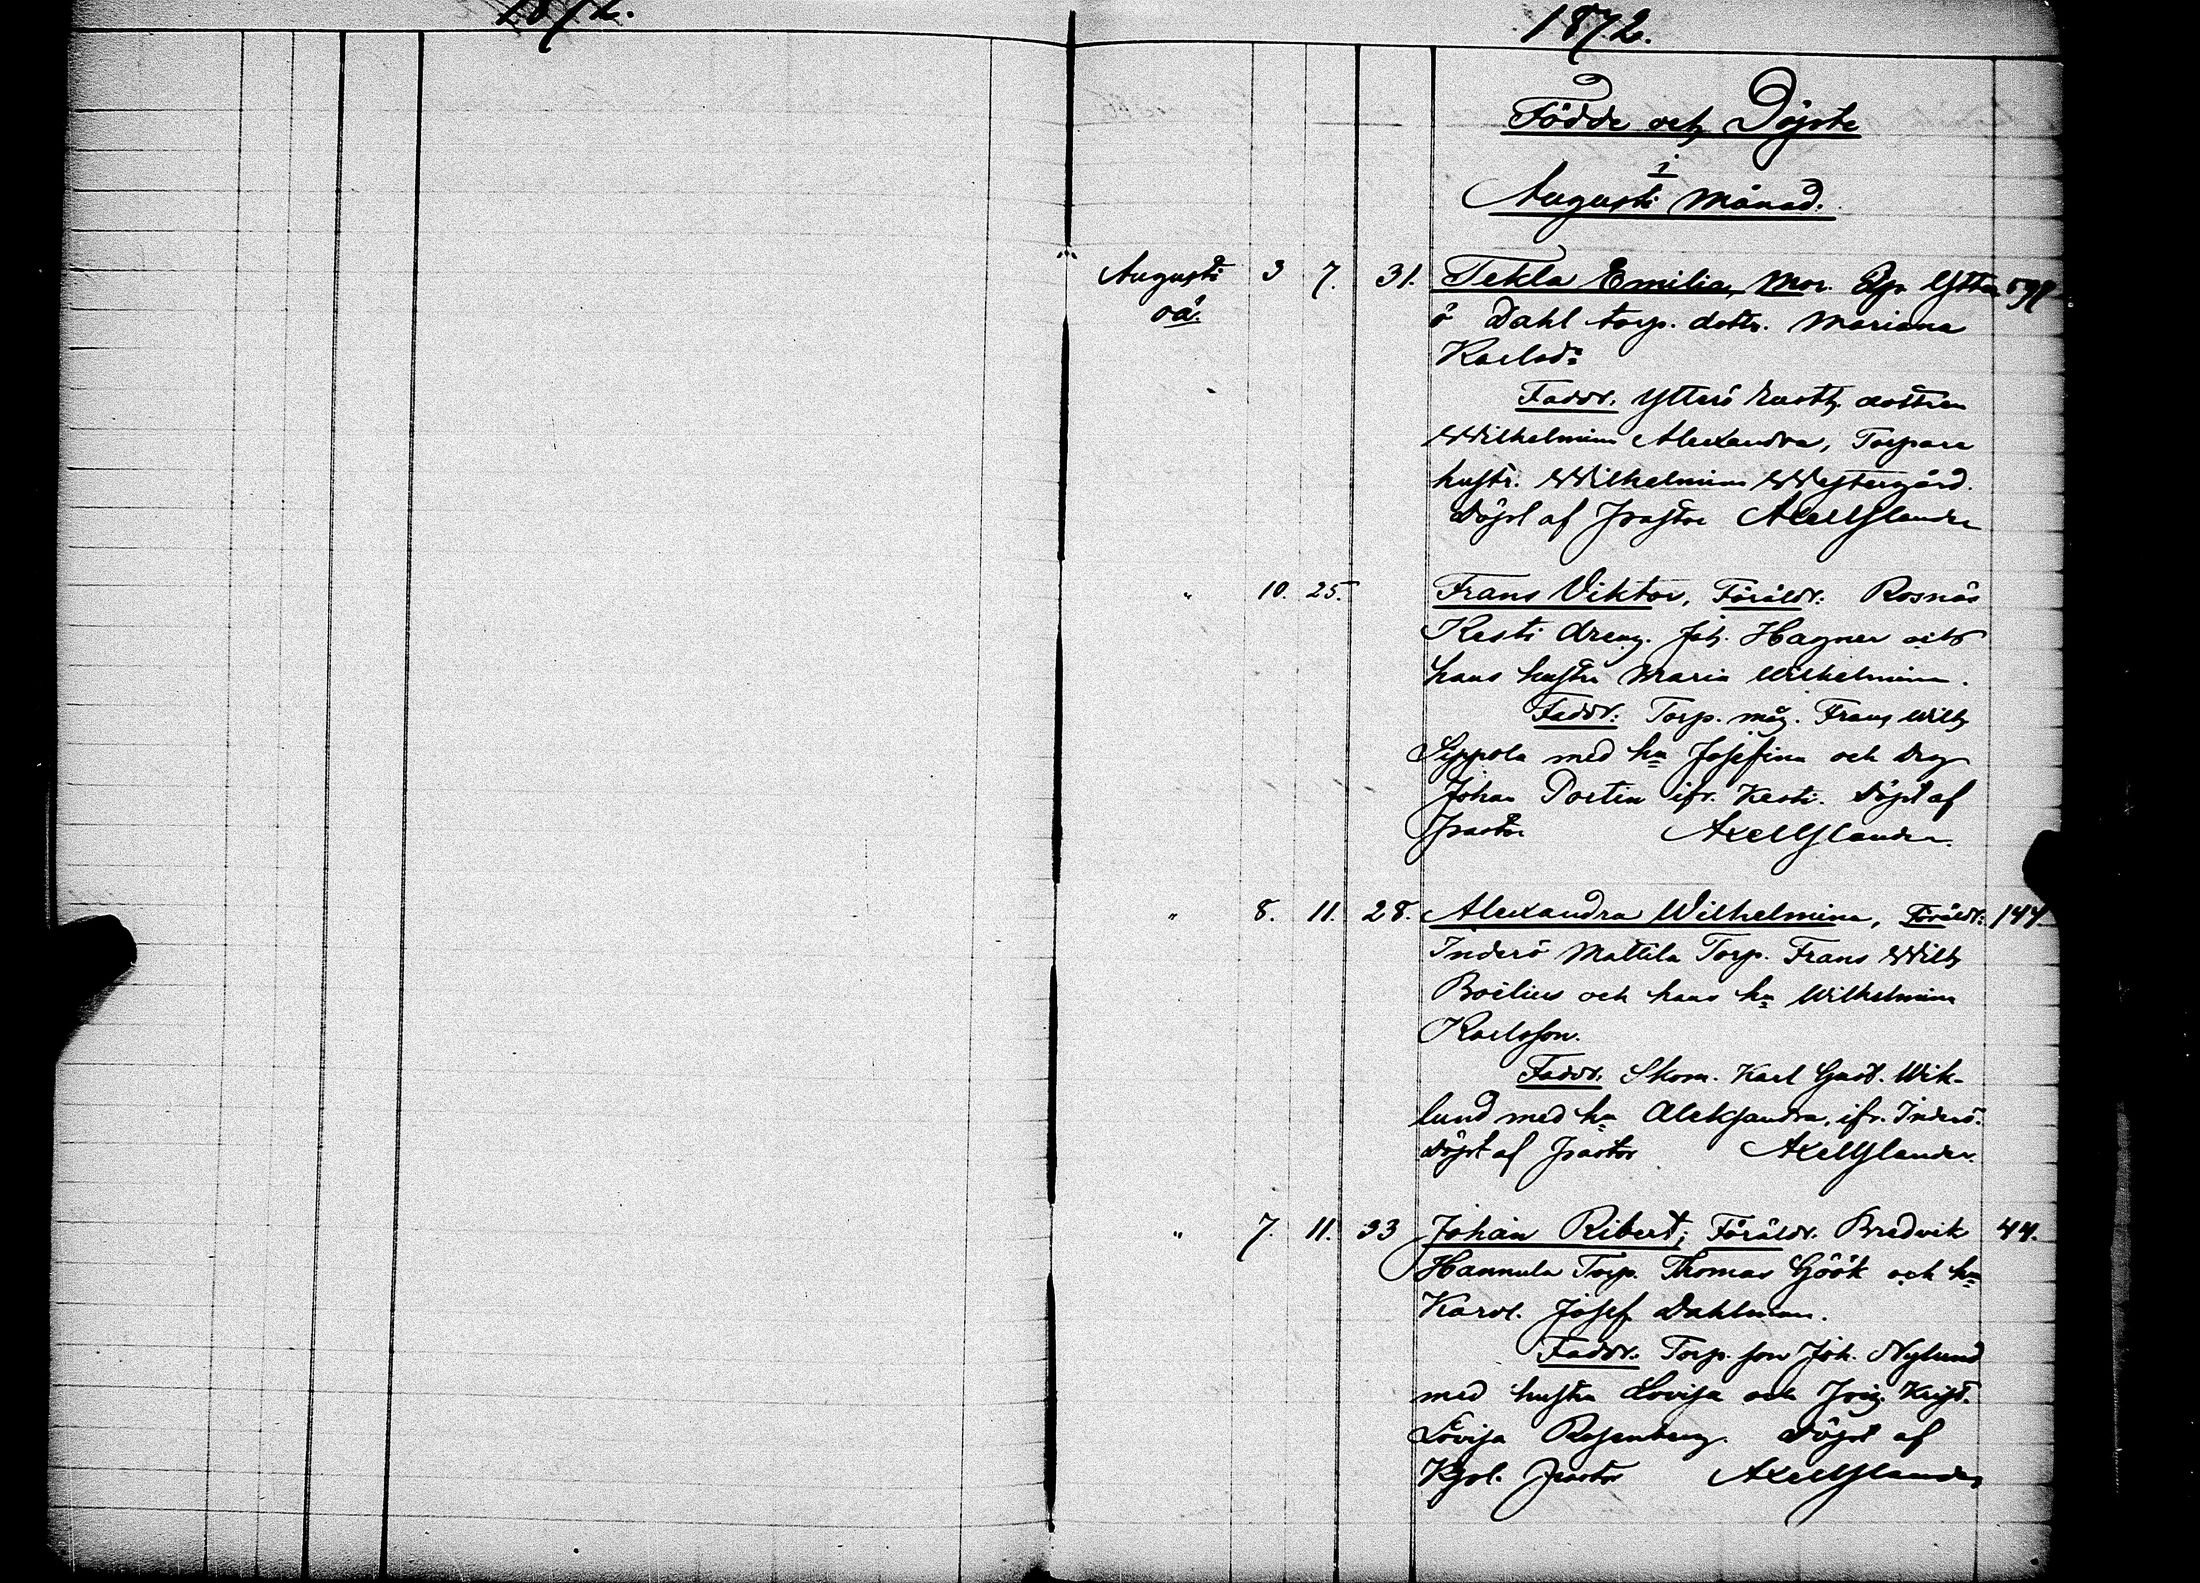 1872.
1872.
Födde och Döpte
i
Augusti Månad.
Augusti 3 7. 31. Tekla Emilia, Mor. Ytter
oä. ö Dahl torp. dottr. Mariana
Karlsd:
Faddr. Ytterö Rusth. dottren
Wilhelmina Alexandra, Torpare
hustr. Wilhelmina Westergård.
Döpt af Pastor Axel Ylander
" 10. 25. Frans Viktor, Föräldr: Rosnäs
Kesti dreng. Joh. Hagner och
hans hustru Maria Wilhelmina.
Faddr: Torp. måg. Frans Wilh
Seppola med hu Josefina och drg
Johan Portin ifr. Kesti. Döpt af
Pastor Axel Ylander.
" 8. 11. 28. Alexandra Wilhelmina, Föräldr: 144.
Inderö Mattila Torp. Frans Wilh
Boëlius och hans hu Wilhelmina
Karlsson.
Faddr. Skom. Karl Gust. Wik-
lund med hu Aleksandra, ifr. Inderö.
Döpt af Pastor Axel Ylander.
" 7. 11. 33 Johan Ribert; Föräldr. Bredvik 44.
Hannula Torp. Thomas Göök och hu
Karol. Josef. Dahlman.
Faddr: Torp. son Joh. Nylund
med hustru Lovisa och Krist.
Lovisa Rosenberg. Döpt af
Kpl. Pastor Axel Ylander